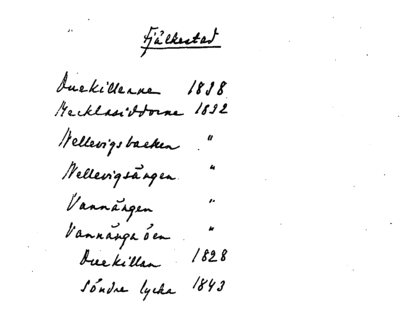 Fjälkestad
Duekillarne 1838
Mecklasiddorne 1832
Nellevigsbacken "
Nellevigsängen "
Vannängen "
Vannänga öen "
Duekillan 1828
Söndre lycka 1843